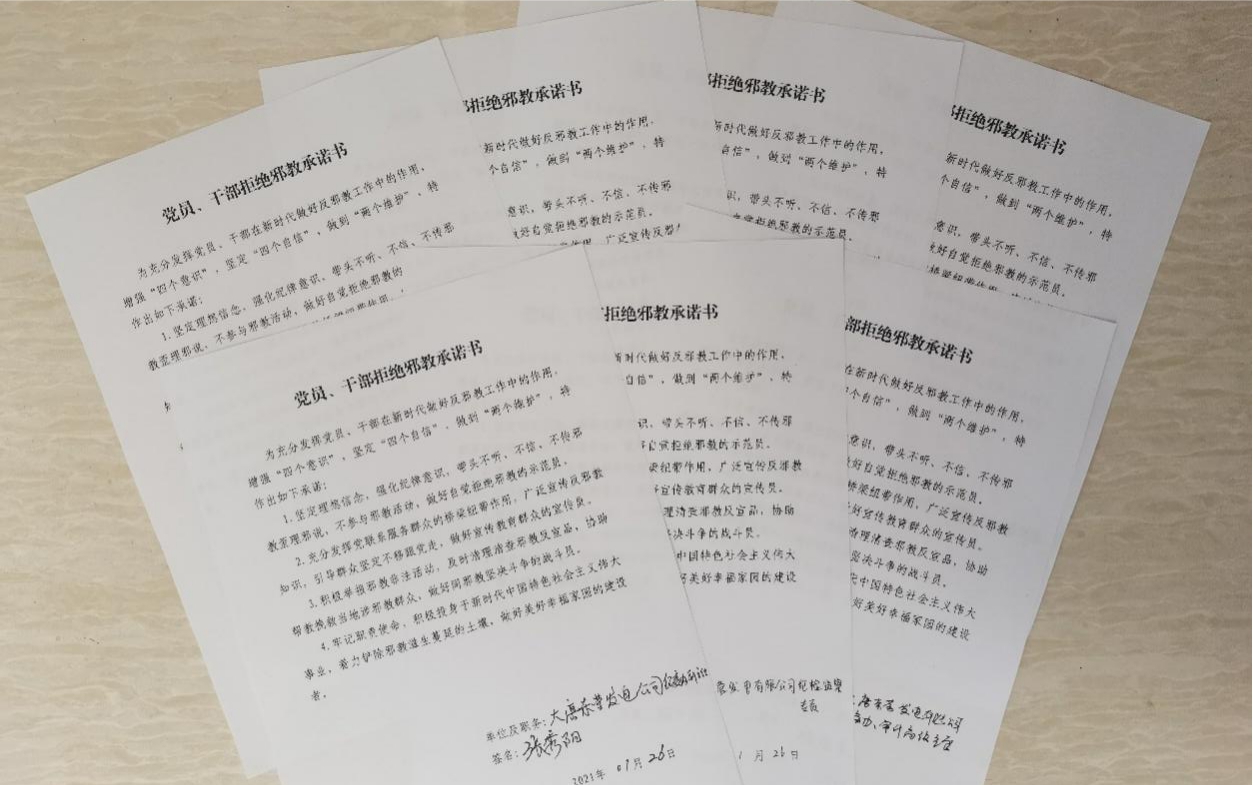 党员、干部拒绝邪教承诺书
为充分发挥党员、干部在新时代做好反邪教工作中的作用,
增强“四个意识”,坚定“四个自信”,做到“两个维护”,特
作出如下承诺:
1.坚定理想信念,强化纪律意识、带头不听、不信、不传邪
教歪理邪说,不参与邪教活动,做好自觉拒绝邪教的
拒绝邪教承诺书
新时代做好反邪教工作中的作用,
个自信”,做到“两个维护”,特
意识,带头不听、不信、不传邪
好自觉拒绝邪教的示范员。
广泛宣传反邪
拒绝邪教承诺书
新时代做好反邪教工作中的作用,
自信”,做到“两个维护”,特
识,带头不听、不信、不传邪
自觉拒绝邪教的示范员。
拒绝邪教承诺书
新时代做好反邪教工作中的作用,
个自信”,做到“两个维护”,特
意识,带头不听、不信、不传邪
好自觉拒绝邪教的示范员。
党员、干部拒绝邪教承诺书
为充分发挥党员、干部在新时代做好反邪教工作中的作用,
增强“四个意识”,坚定“四个自信”,做到“两个维护”,特
作出如下承诺:
1.坚定理想信念,强化纪律意识、带头不听、不信、不传邪
教歪理邪说,不参与邪教活动,做好自觉拒绝邪教的示范员。
2.充分发挥党联系服务群众的桥梁纽带作用,广泛宣传反邪教
知识,引导群众坚定不移跟党走,做好宣传教育群众的宣传员。
3.积极举报邪教非法活动,及时清理清查邪教反宣品,协助
帮教挽救当地涉邪教群众,做好同邪教坚决斗争的战斗员。
4.牢记职责使命,积极投身于新时代中国特色社会主义伟大
事业,着力铲除邪教滋生蔓延的土壤,做好美好幸福家园的建设
者。
单位及职务:大唐东营发电公司
签名:张秀阳
2021年 01月 26日
拒绝邪教承诺书
新时代做好反邪教工作中的作用,
自信”,做到“两个维护”,特
识,带头不听、不信、不传邪
自觉拒绝邪教的示范员。
梁纽带作用,广泛宣传反邪教
宣传教育群众的宣传员。
理清查邪教反宣品,协助
决斗争的战斗员。
中国特色社会主义伟大
美好幸福家园的建设
营发电有限公司纪检监察
专员
1 月 26 日
部拒绝邪教承诺书
在新时代做好反邪教工作中的作用,
个自信”,做到“两个维护”,特
意识,带头不听、不信、不传邪
好自觉拒绝邪教的示范员。
桥梁纽带作用,广泛宣传反邪教
好宣传教育群众的宣传员。
清理清查邪教反宣品,协助
坚决斗争的战斗员。
代中国特色社会主义伟大
好美好幸福家园的建设
唐东营发电有限公司
审计高级主管